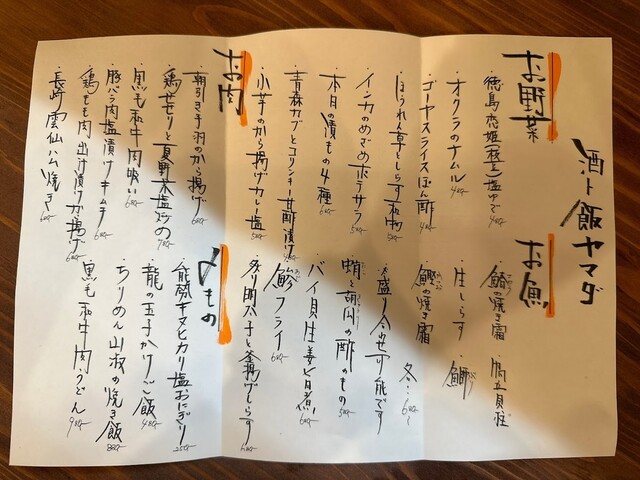 酒ト飯ヤマダ
お野菜
・徳島恋姫(枝豆)塩ゆで 4
・オクラのナムル 4
・ゴーヤスライスぽん酢 4
・ほうれん草としらす和物 5
・インカのめざめポテサラ 5
・本日の漬もの4種 6
・青森カブとコリンキー甘酢漬け
・小芋のから揚げカレー塩 5
お肉
・朝引き手羽のから揚げ 6
・鶏せせりと夏野菜塩炒め 7
・黒毛和牛肉吸い 6
・豚バラ肉塩漬けキムチ 6
・鶏もも肉出汁漬けから揚げ 6
・長崎雲仙ハム焼き 6
お魚
・鱸の焼き霜 ・帆立貝柱
・生しらす ・鰤
・鰹の焼き霜
各・・6
・盛り合せ可能です
・蛸と胡瓜の酢のもの 5
・バイ貝生姜旨煮 6
・鯵フライ 6
・炙り明太子と釜揚げしらす 6
〆もの
・能勢キヌヒカリ塩おにぎり 25
・龍の玉子かけご飯 4
・ちりめん山椒の焼き飯 8
・黒毛和牛肉うどん 9